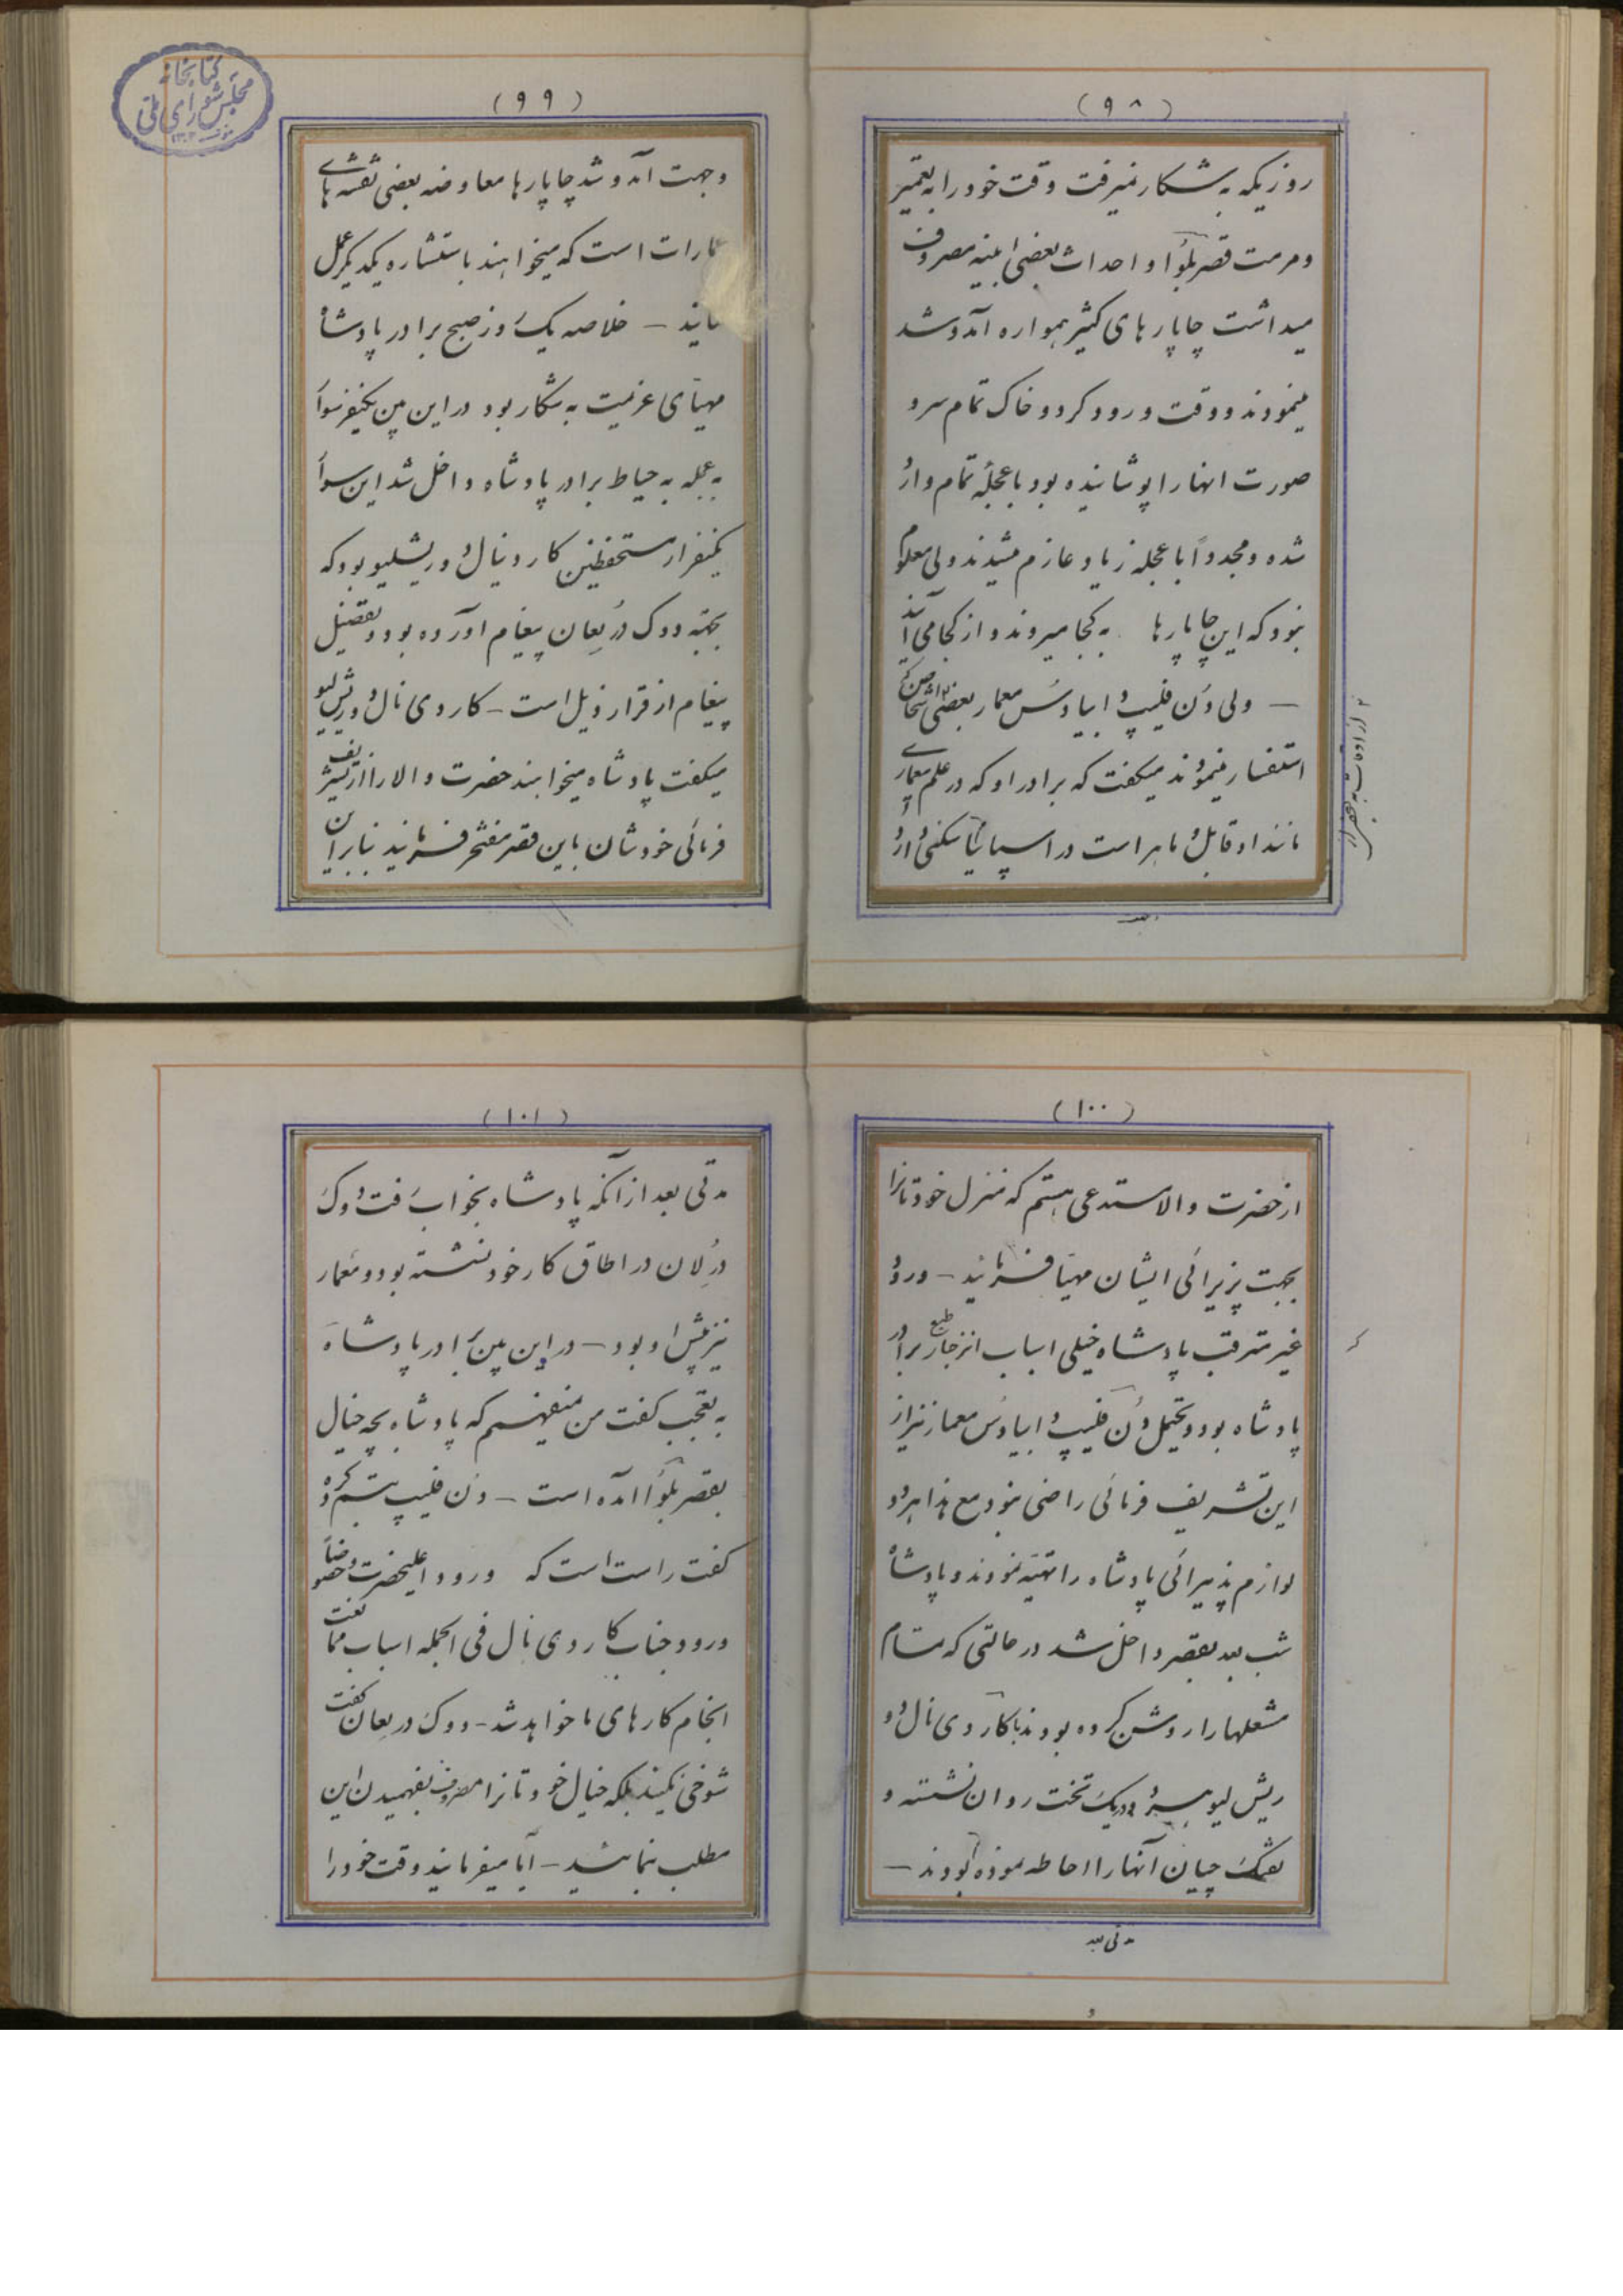 (۹۸)
روزیکه به شکار نمیرفت وقت خود را به تعمیر
و مرمت قصر بلوا و احداث بعضی ابنیه مصروف
میداشت چاپارهای کثیر همواره آمد و شد
مینمودند و وقت ورود گرد و خاک تمام سر و
صورت انها را پوشانیده بود با عجله تمام وارد
شده و مجدداً با عجله زیاد عازم میشدند ولی معلوم
نبود که این چاپارها به کجا میروند و از کجا می آیند
— ولی دُن فلیپ و ابیادُس معمار بعضی اشخاص که
استفسار مینمودند میگفت که برادر او که در علم معماری
مانند او قابل و ماهر است در اسپانیا سکنی دارد
وجهت
(۹۹)
وجهت آمد و شد چاپارها معاوضه بعضی نقشه های
عمارات است که میخواهند باستشاره یکدیگر عمل
نمایند — خلاصه یک روز صبح برادر پادشاه
مهیای عزیمت به شکار بود در این بین یکنفر سوار
به عجله به حیاط برادر پادشاه داخل شد این سوار
یکنفر از مستحفظین کاردینال دو ریشلیو بود که
بجهة دوک درلعان پیغام آورده بود و تفصیل
پیغام از قرار ذیل است — کاردی نال دو ریش لیو
میگفت پادشاه میخواهند حضرت والا را از تشریف
فرمائی خودشان باین قصر مفتخر فرمایند بنابراین
کتابخانه
مجلس شورای ملی
(۱۰۰)
از حضرت والا مستدعی هستم که منزل خودتانرا
بجهت پزیرائی ایشان مهیا فرمائید — ورود
غیر مترقب پادشاه خیلی اسباب انزجار طبع برادر
پادشاه بود و یحتمل دُن فلیپ و ابیادُس معمار نیز از
این تشریف فرمائی راضی نبود مع هذا هر دو
لوازم پذیرائی پادشاه را تهیه نمودند و پادشاه
شب بعد بقصر داخل شد در حالتی که تمام
مشعلها را روشن کرده بودند با کاردی نال دو
ریش لیو هر دو در یک تخت روان نشسته و
تفنگ چیان آنها را احاطه نموده بودند —
مدتی بعد
(۱۰۱)
مدتی بعد از آنکه پادشاه بخواب رفت دوک
درُلان در اطاق کار خود نشسته بود و معمار
نیز پیش او بود — در این بین برادر پادشاه
به تعجب گفت من نمیفهمم که پادشاه بچه خیال
بقصر بلوا آمده است — دُن فلیپ تبسم کرده
گفت راست است که ورود اعلیحضرت و خصوصاً
ورود جناب کاردی نال فی الجمله اسباب ممانعت
انجام کارهای ما خواهد شد — دوک درلعان گفت
شوخی نکنید بلکه خیال خودتانرا مصروف بفهمیدن این
مطلب نمائید — آیا میفرمائید وقت خود را